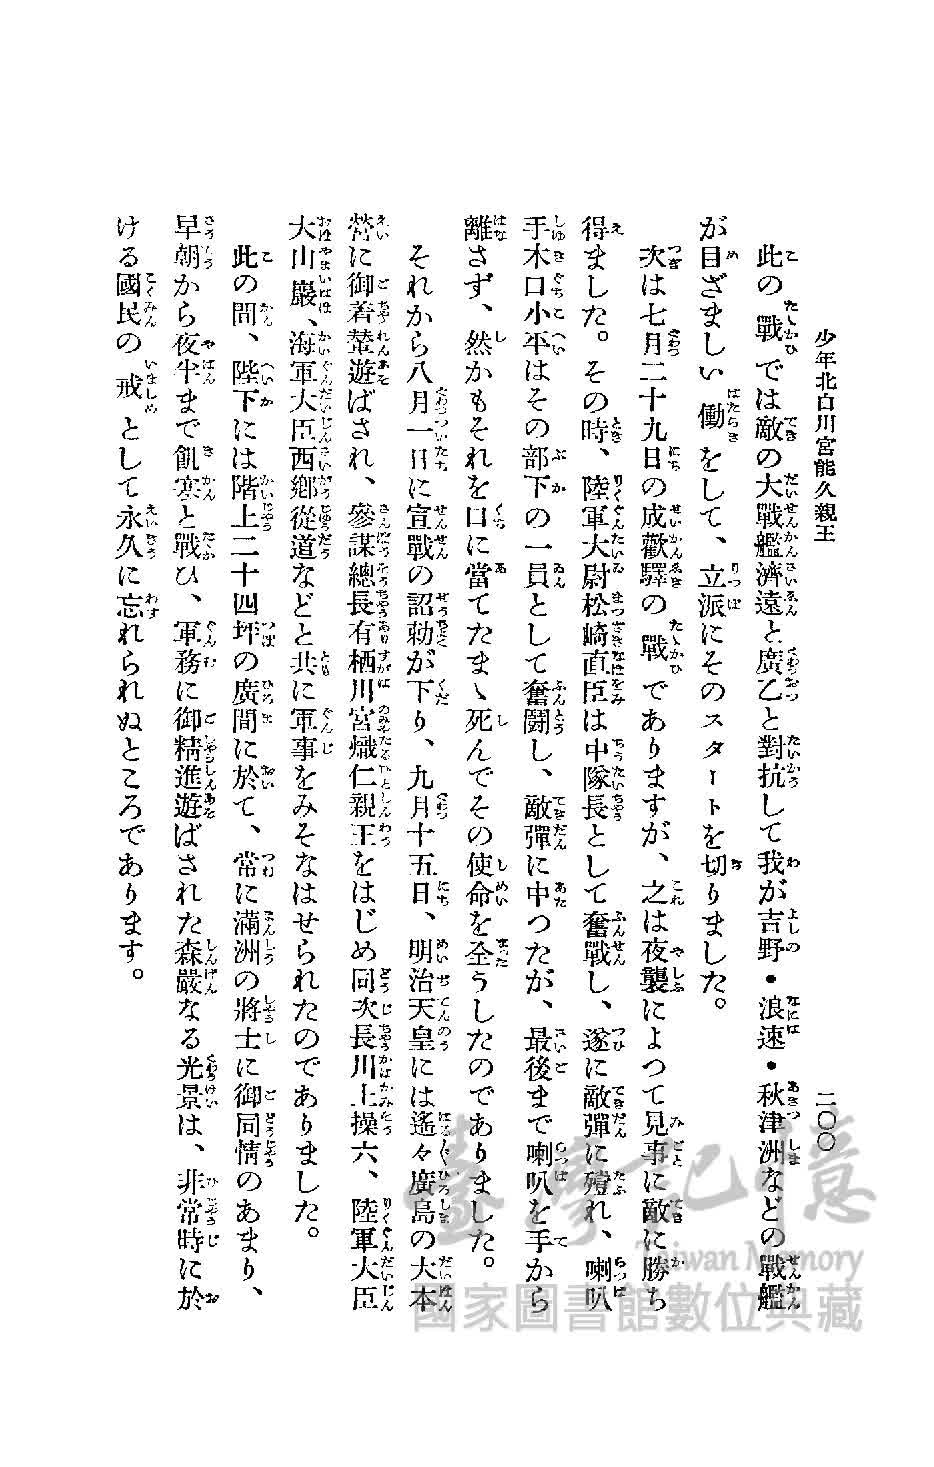 少年北白川宮能久親王
二〇〇
此の戰では敵の大戰艦濟遠と廣乙と對抗して我が吉野・浪速・秋津洲などの戰艦
が目ざましい働をして、立派にそのスタートを切りました。
次は七月二十九日の成歡驛の戰でありますが、之は夜襲によつて見事に敵に勝ち
得ました。その時、陸軍大尉松崎直臣は中隊長として奮戰し、遂に敵彈に殪れ、喇叭
手木口小平はその部下の一員として奮鬪し、敵彈に中つたが、最後まで喇叭を手から
離さず、然かもそれを口に當てたまゝ死んでその使命を全うしたのでありました。
それから八月一日に宣戰の詔勅が下り、九月十五日、明治天皇には遙々廣島の大本
營に御着輦遊ばされ、參謀總長有栖川宮熾仁親王をはじめ同次長川上操六、陸軍大臣
大山巖、海軍大臣西鄕從道などと共に軍事をみそなはせられたのでありました。
此の間、陛下には階上二十四坪の廣間に於て、常に滿洲の將士に御同情のあまり、
早朝から夜半まで飢寒と戰ひ、軍務に御精進遊ばされた森嚴なる光景は、非常時に於
ける國民の戒として永久に忘れられぬところであります。
臺灣記憶
Taiwan Memory
國家圖書館數位典藏